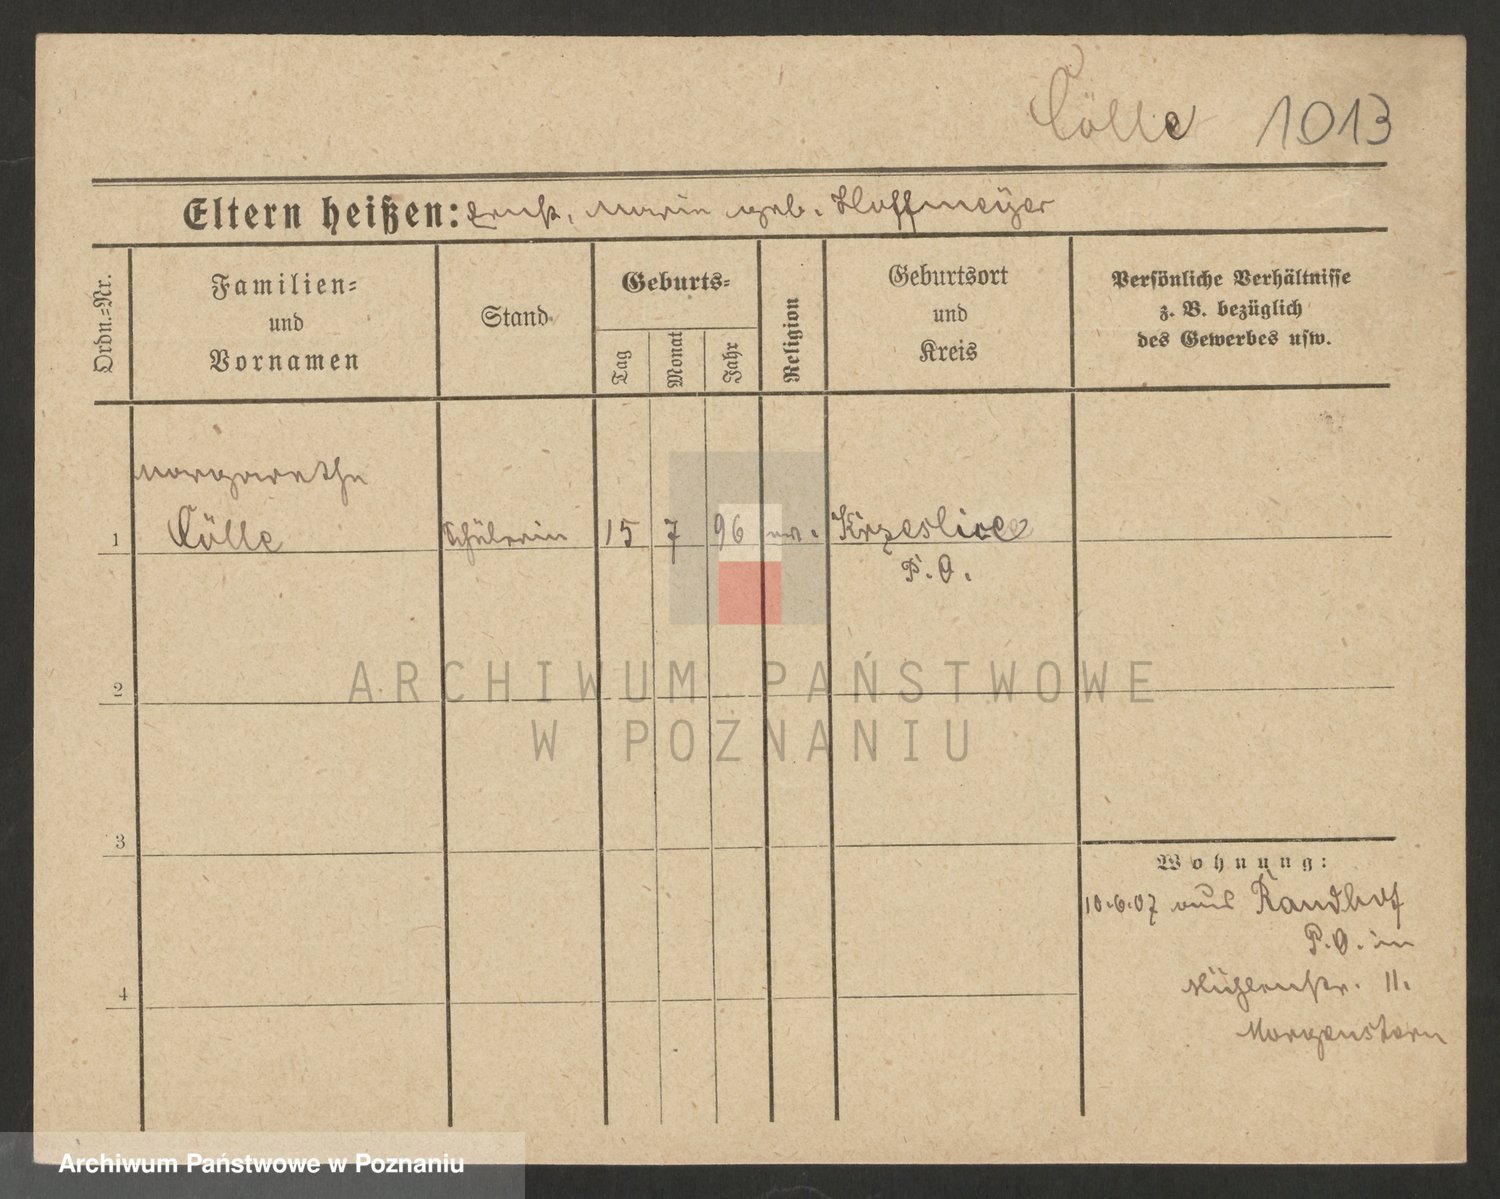 Cölle 1013
Eltern heißen: Ernst, Marie geb. Hoffmeyer
Ordn.=Nr.
Familien=
und
Vornamen
Stand
Geburts=
Tag
Monat
Jahr
Religion
Geburtsort
und
Kreis
Persönliche Verhältnisse
z. B. bezüglich
des Gewerbes usw.
Margarethe
1 Cölle Schülerin 15 7 96 ev. Krzeslice
P. O.
ARCHIWUM PAŃSTWOWE
2
W POZNANIU
3
Wohnung:
10.6.07 aus Randhof
P. O. in
4
Mühlenstr. 11.
Morgenstern
Archiwum Państwowe w Poznaniu